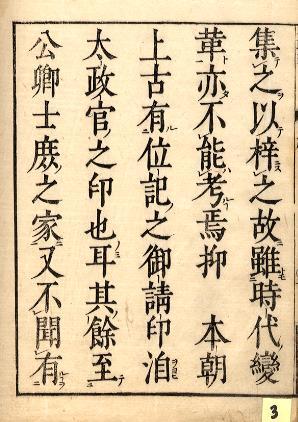 集之以梓之故雖時代變
革亦不能考焉抑　本朝
上古有位記之御請印洎
太政官之印也耳其餘至
公卿士庶之家又不聞有
3